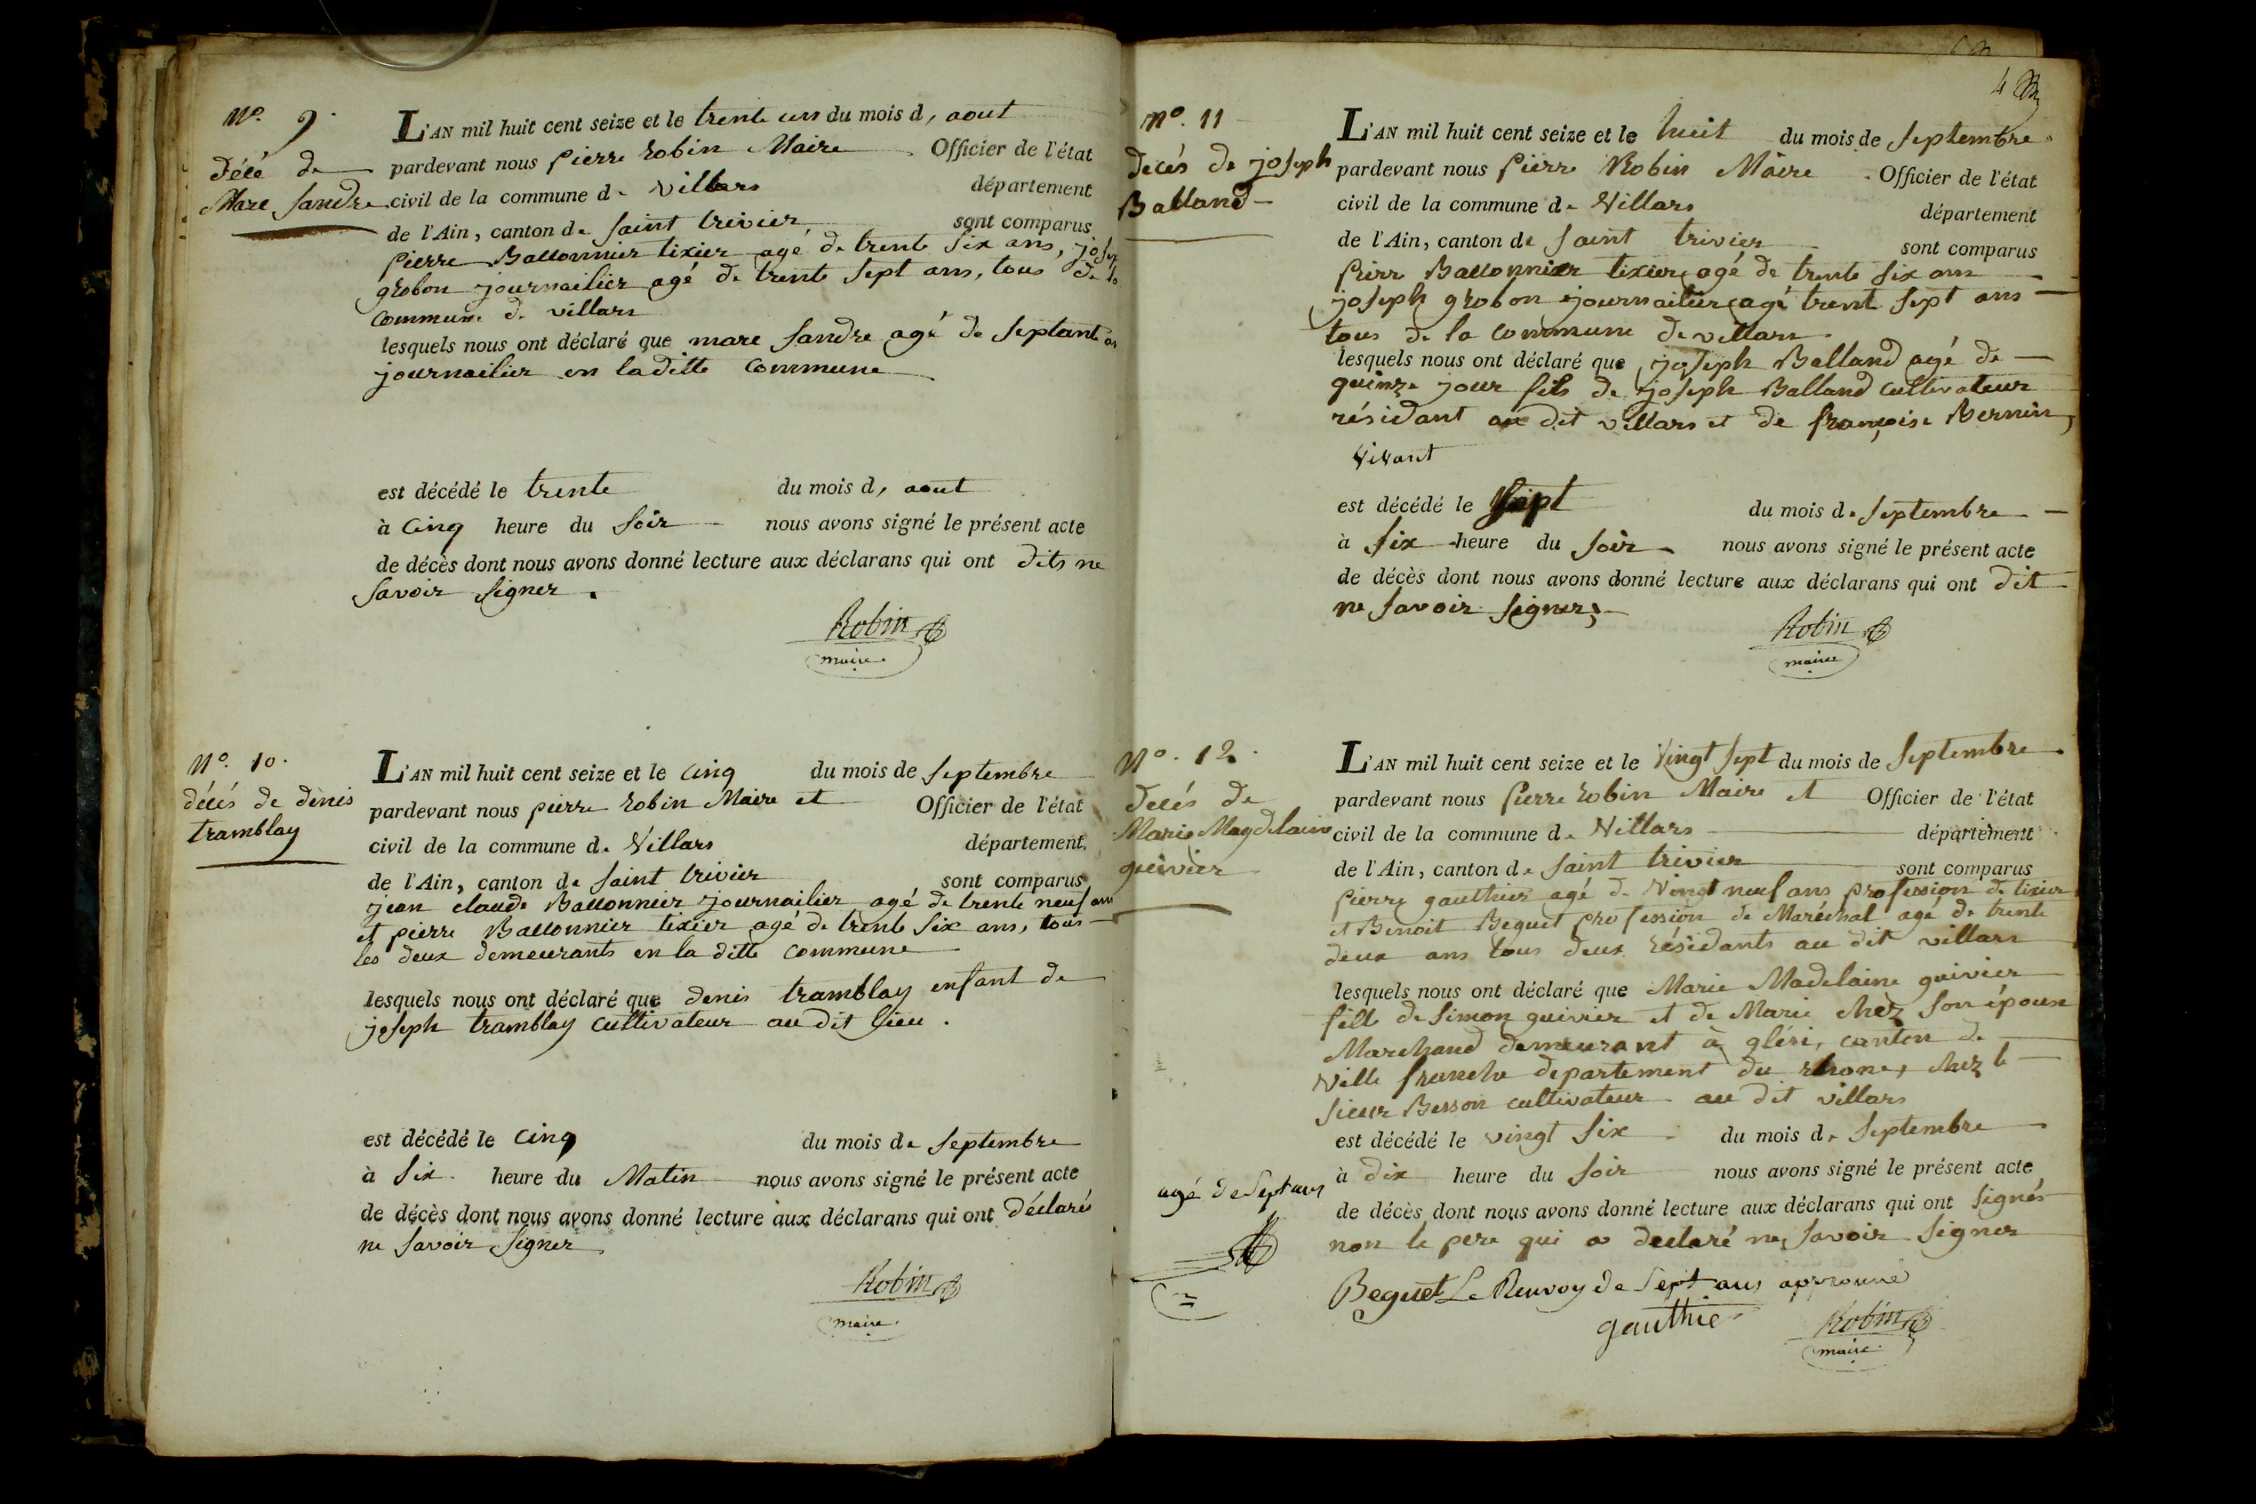 N.o 9.
décé de
Marc Sandre
L'AN mil huit cent seize et le trente un du mois d, aout
pardevant nous pierre Robin Maire Officier de l'état
civil de la commune de Villars département
de l'Ain, canton de Saint trivier sont comparus
pierre Ballonnier tixier agé de trente six ans, josep
grobon journailier agé de trente sept ans, tous de la
commune de villars
lesquels nous ont déclaré que marc Sandre agé de Septante an
journailier en laditte commune
est décédé le trente du mois d, aout
à Cinq heure du Soir nous avons signé le présent acte
de décès dont nous avons donné lecture aux déclarans qui ont dits ne
Savoir Signer.
Robin
maire
N.o 10.
décés de denis
tramblay
L'AN mil huit cent seize et le cinq du mois de Septembre
pardevant nous pierre Robin Maire et Officier de l'état
civil de la commune de Villars département
de l'Ain, canton de Saint trivier sont comparus
jean claude Ballonnier journailier agé de trente neuf ans
et pierre Ballonnier tixier agé de trente Six ans, tous
les deux demeurants en la ditte commune
lesquels nous ont déclaré que denis tramblay enfant de
joseph tramblay cultivateur au dit lieu.
est décédé le Cinq du mois de Septembre
à Six heure du Matin nous avons signé le présent acte
de décès dont nous avons donné lecture aux déclarans qui ont déclarés
ne Savoir Signer
Robin
maire
4
N.o 11
decés de joseph
Balland
L'AN mil huit cent seize et le huit du mois de Septembre
pardevant nous pierre Robin Maire Officier de l'état
civil de la commune de Villars département
de l'Ain, canton de Saint trivier sont comparus
pierr Ballonnier tixier agé de trente six ans
joseph grobon journailier agé trent sept ans
tous de la commune de villars
lesquels nous ont déclaré que joseph Balland agé de
quinze jour fils de joseph Balland cultivateur
résidant au dit villars et de françoise Bernin,
Vivant
est décédé le Sept du mois de Septembre
à Six heure du Soir nous avons signé le présent acte
de décès dont nous avons donné lecture aux déclarans qui ont dit
ne Savoir Signer,
Robin
maire
N.o 12.
decés de
Marie Magdelaine
guivier
L'AN mil huit cent seize et le Vingt Sept du mois de Septembre
pardevant nous pierre Robin Maire et Officier de l'état
civil de la commune de Villars département
de l'Ain, canton de Saint trivier sont comparus
pierre gauthier agé de Vingt neuf ans profession de tixier
et Benoit Beguet profession de Maréchal agé de trente
deux ans tous deux résidants au dit villars
lesquels nous ont déclaré que Marie Madelaine guivier
fille de Simon guivier et de Marie chez son épouse
Marchand demeurant à gléri, canton de
Ville franche departement du rhone, chez le
Sieur Besson cultivateur au dit villars
est décédé le vingt Six du mois de Septembre
à dix heure du Soir nous avons signé le présent acte
de décès dont nous avons donné lecture aux déclarans qui ont Signés
non le pere qui a declaré ne Savoir Signer
agé de Sept ans
Beguet Le Renvoy de Sept ans approuvé
gauthie
Robin
maire